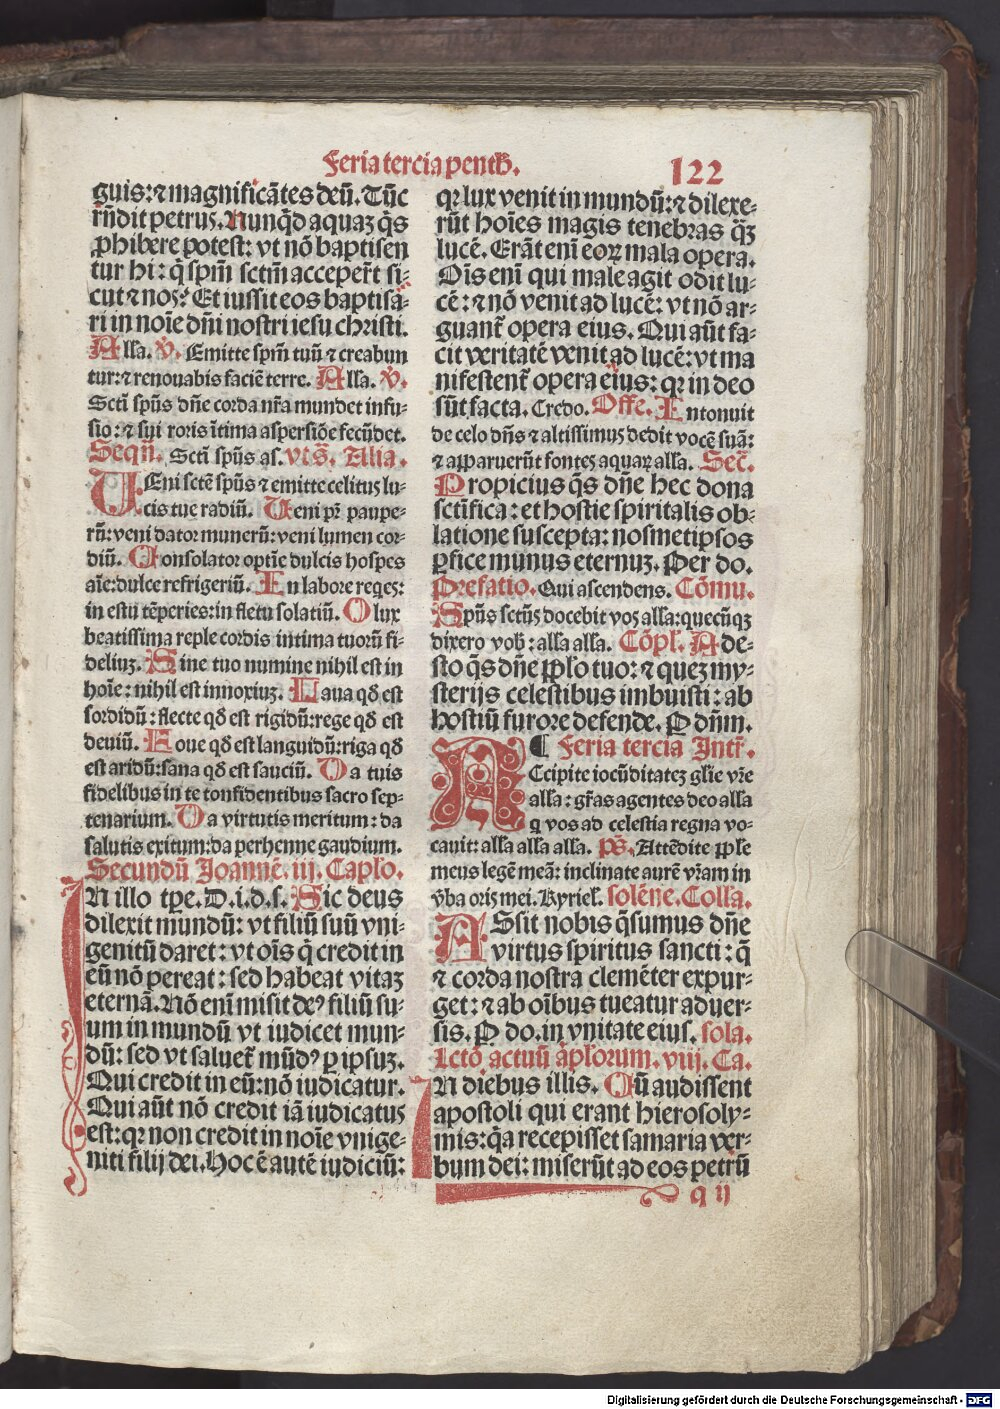 Feria tercia penth̄.
122
guis: ⁊ magnificātes deū. Tūc
rn̄dit petrus. Nunqͥd aquaꝫ qͥs
ꝓhibere potest: vt nō baptisen
tur hi: qͥ spm̄ sctm̄ acceper̄t si-
cut ⁊ nos? Et iussit eos baptisa-
ri in noīe dn̄i nostri iesu christi.
Alla. V̄. Emitte spm̄ tuū ⁊ creabun
tur: ⁊ renouabis faciē terre. Alla. V̄.
Sctī spūs dn̄e corda nr̄a mundet infu-
sio: ⁊ sui roris ītima aspersiōe fecūdet.
Seqn̄. Sctī spūs aſ. vt s̄. Alia.
VEni sctē spūs ⁊ emitte celitus lu-
cis tue radiū. Veni pr̄ paupe-
rū: veni dator munerū: veni lumen cor-
diū. Consolator optīe dulcis hospes
aīe: dulce refrigeriū. In labore reqes:
in estu tēperies: in fletu solatiū. O lux
beatissima reple cordis intima tuorū fi-
deliuꝫ. Sine tuo numine nihil est in
hoīe: nihil est innoxiuꝫ. Laua qd̄ est
sordidū: flecte qd̄ est rigidū: rege qd̄ est
deuiū. Foue qd̄ est languidū: riga qd̄
est aridū: sana qd̄ est sauciū. Da tuis
fidelibus in te confidentibus sacro sep-
tenarium. Da virtutis meritum: da
salutis exitum: da perhenne gaudium.
Secundū Joannē. iij. Caplo.
IN illo tꝑe. D. i. d. s. Sic deus
dilexit mundū: vt filiū suū vni-
genitū daret: vt oīs q̄ credit in
eū nō pereat: sed habeat vitaꝫ
eternā. Nō enī misit deꝰ filiū su-
um in mundū vt iudicet mun-
dū: sed vt saluet᷑ mūdꝰ ꝑ ipsuꝫ.
Qui credit in eū: nō iudicatur.
Qui aūt nō credit iā iudicatus
est: qꝛ non credit in noīe vnige-
niti filij dei. Hoc ē autē iudiciū:
qꝛ lux venit in mundū: ⁊ dilexe-
rūt hoīes magis tenebras q̄ꝫ
lucē. Erāt enī eoꝝ mala opera.
Oīs enī qui male agit odit lu-
cē: ⁊ nō venit ad lucē: vt nō ar-
guant᷑ opera eius. Qui aūt fa-
cit veritatē venit ad lucē: vt ma
nifestent᷑ opera eius: qꝛ in deo
sūt facta. Credo. Offe. Intonuit
de celo dn̄s ⁊ altissimus dedit vocē suā:
⁊ apparuerūt fontes aquaꝝ alla. Sec̄.
Propicius qͥs dn̄e hec dona
sctīfica: et hostie spiritalis ob-
latione suscepta: nosmetipsos
ꝑfice munus eternuꝫ. Per do.
Prefatio. Qui ascendens. Cōmu.
Spūs sctūs docebit vos alla: quecūqꝫ
dixero vob̄: alla alla. Cōpl̄. Ade-
sto qͥs dn̄e pplo tuo: ⁊ queꝫ my-
sterijs celestibus imbuisti: ab
hostiū furore defende. P dn̄m.
¶ Feria tercia Intr̄.
ACcipite iocūditateꝫ glīe vr̄e
alla: gr̄as agentes deo alla
q vos ad celestia regna vo-
cauit: alla alla alla. Ps̄. Attēdite pple
meus legē meā: inclinate aurē vr̄am in
v̄ba oris mei. Kyriel̄. solēne. Colla.
ASsit nobis qͥsumus dn̄e
virtus spiritus sancti: q̄
⁊ corda nostra clemēter expur-
get: ⁊ ab oībus tueatur aduer-
sis. P do. in vnitate eius. sola.
Lctō actuū aplorum. viij. Ca.
IN diebus illis. Cū audissent
apostoli qui erant hierosoly-
mis: qͣ recepisset samaria ver-
bum dei: miserūt ad eos petrū
q ij
Digitalisierung gefördert durch die Deutsche Forschungsgemeinschaft - DFG